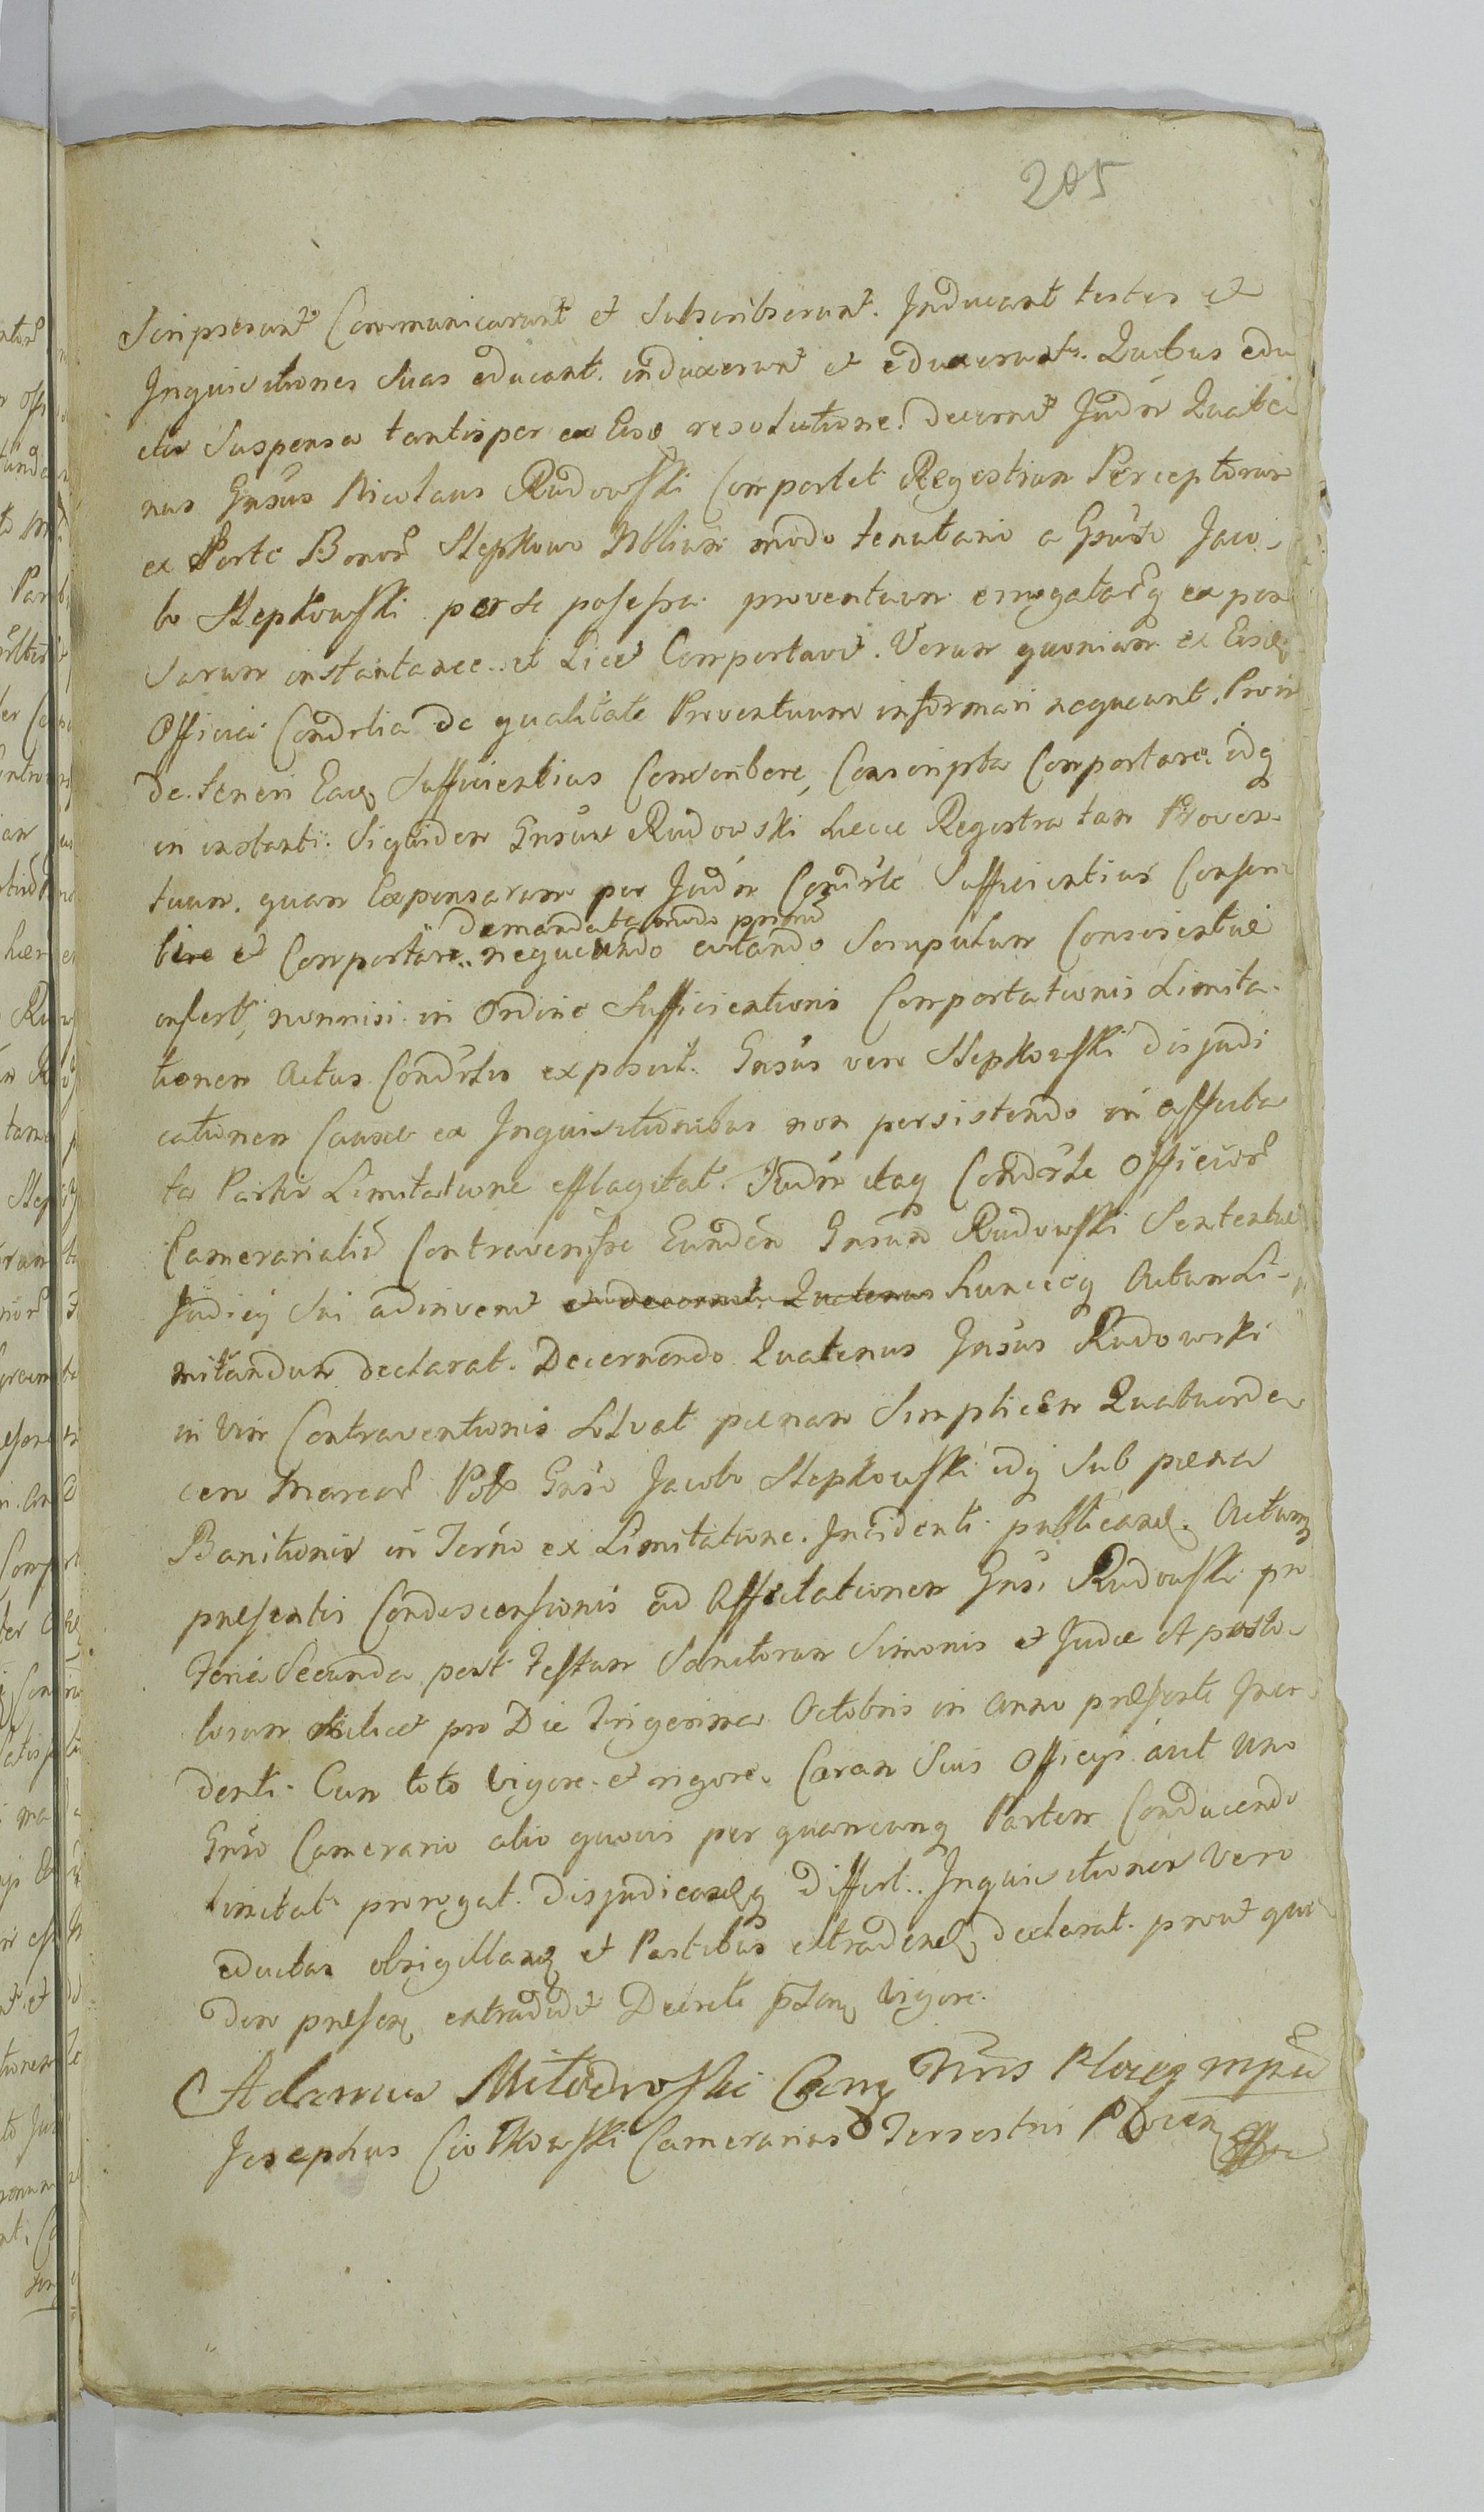 205
Scripserunt Communicarunt et Subscribserunt. Inducant testes et
Inquisitiones Suas educant. induxerunt et eduxerunt. Quibus edu
ctis Suspensa tantisper ex Eisd resolutione. decernit Judm Quate
nus Gnsus Nicolaus Rudowski Comportet Regestrum Perceptorum
ex Parte Bonor Stepkowo Nobilium modo tenutario a Gnso Jaco-
bo Stepkowski per se possessa proventuum erogatarq expen
sarum instantanee. et Licet Comportavit. Verum quoniam ex Eisd
Officia Condrlia de qualitate Proventuum informari nequeunt. Proin
de teneri Eaq Sufficientius Conscribere, Conscripta Comportare idq
in instanti. Siquidem Gnsus Rudowski hecce Regestra tam Proven-
tuum. quam Expensarum per Judm Condrle Sufficientius Conscri
demandata modo prmo
bere et Comportare. nequeundo evitando Scrupulum Conscientiae
infert, nonnisi in Ordine Sufficientioris Comportationis Limita-
tionem Actus Condrlis exposcit. Gnsus vero Stepkowski disjudi
cationem Causae ex Inquisitionibus non persistendo in affecta
ta Parte Limitatione efflagitat. Judm itaq Condrle Officior
Camerarialiu Contravenisse Eundem Gnsum Rudowski Sententiae
Judicij Sui adinvenit et decernit. Quatenus huncceq Actum Li-
mitandum declarat. Decernendo Quatenus Gnsus Rudowski
in Vim Contraventionis Solvat paenam Simplicem Quatuorde
cem Marcar Pol Gnso Jacobo Stepkowski idq Sub paena
Banitionis in Termo ex Limitatione. Incidenti publicand. Actumq
praesentis Condescensionis ad Affectationem Gnsi Rudowski pro
Feria Secunda post Festum Sanctorum Simonis et Judae Aposto-
lorum scilicet pro Die Trigesima Octobris in Anno praesenti Inci-
denti. Cum toto vigore et rigore. Coram Suis Officijs aut Uno
Gnso Camerario alio quovis per quamcunq Partem Conducendo
limitat prorogat. disjudicandq differt. Inquisitiones Vero
eductas obsigilland et Partibus extradend declarat. prout qui
dem praesen extradidit Decreti pntis Vigore.
Adamus Milodroski Camq Trris Plocen mppa
Josephus Ciołkowski Camerarius Terrestris Plocen